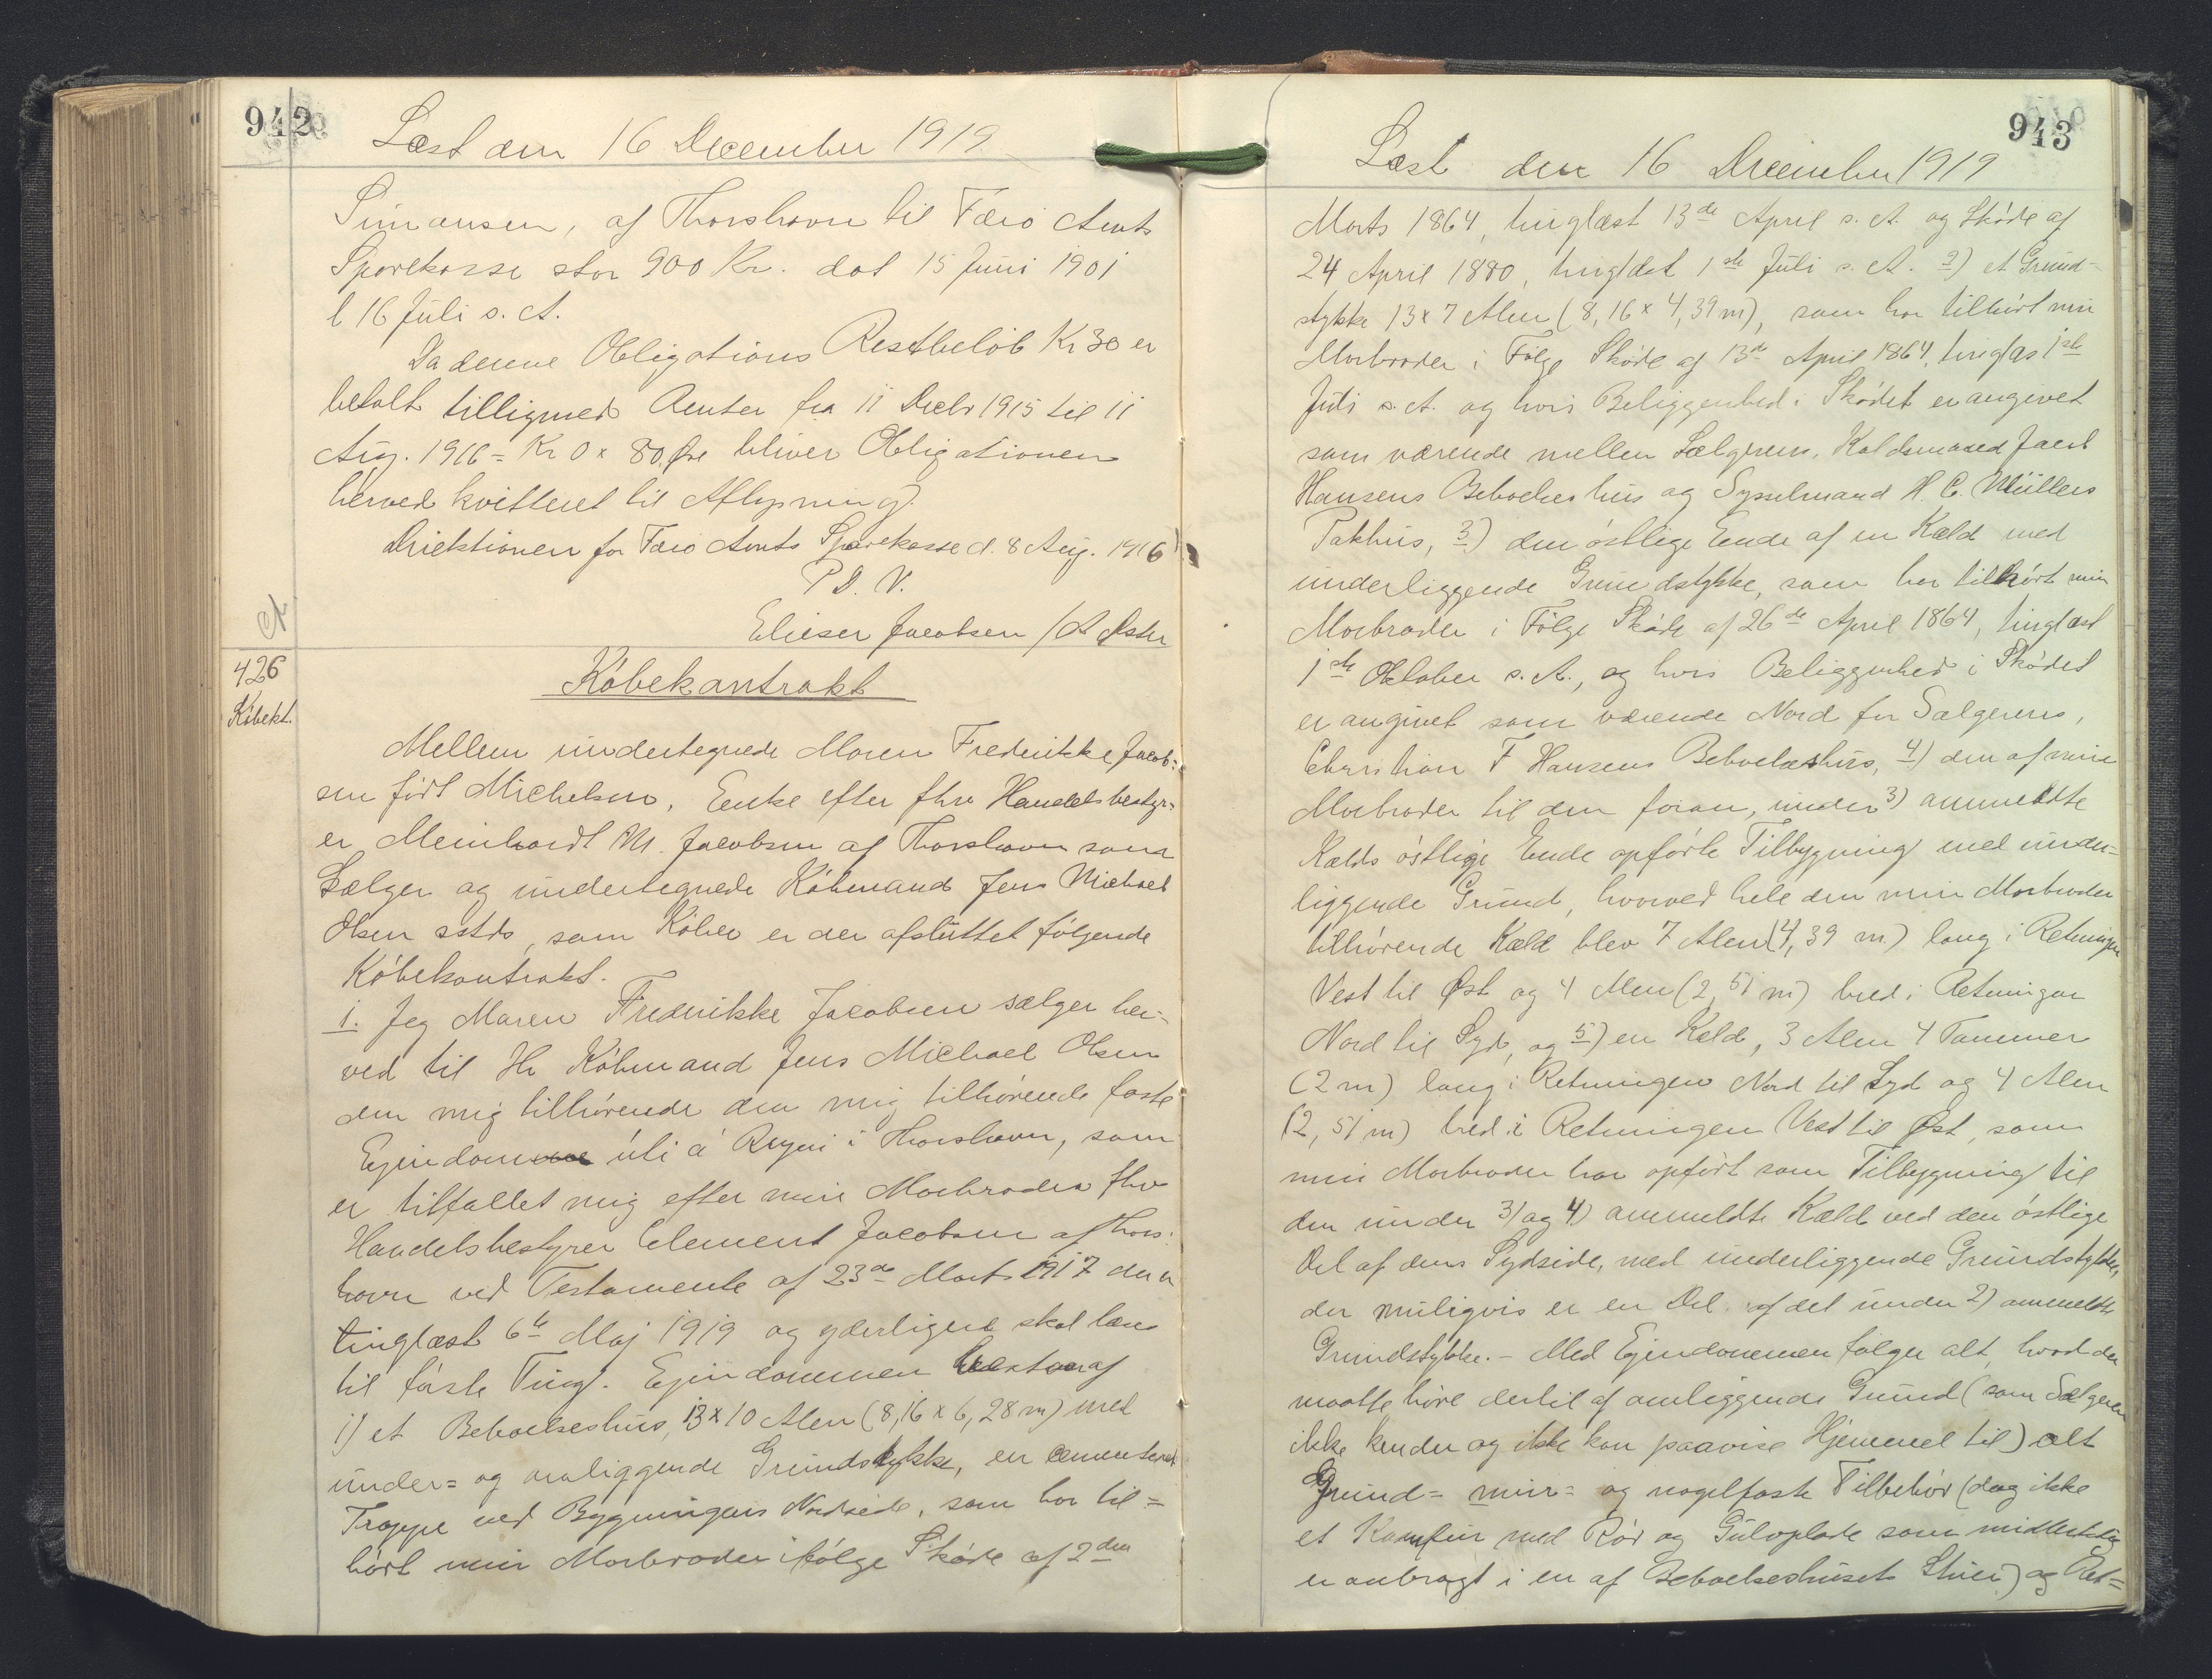 942
Læst den 16 December 1919
Simonsen, af Thorshavn til Færö Amts
Sparekasse stor 900 Kr. dat 15 Juni 1901
l 16 Juli s. A.
Da denne Obligations Restbelöb Kr 30 er
betalt tilligmed Renter fra 11 Decbr 1915 til 11
Aug. 1916 = Kr 0 x 80 Øre bliver Obligationen
herved kvitteret til Aflysning.
Direktionen for Færö Amts Sparekasse d. 8 Aug. 1916
P. D. V.
Elieser Jacobsen /
A
426
Köbekt.
Köbekontrakt
Mellem undertegnede Maren Frederikke Jacob=
sen födt Michelsen, Enke efter fhv Handelsbestyr=
er Meinhardt M. Jacobsen af Thorshavn som
Sælger og undertegnede Köbmand Jens Michael
Olsen sstds, som Köber er der afsluttet følgende
Köbekontrakt.
1. Jeg Maren Frederikke Jacobsen sælger her-
ved til Hr Köbmand Jens Michael Olsen
den mig tilhörende den mig tilhörende faste
Ejendom úti á Reyni i Thorshavn, som
er tilfaldet mig efter min Morbroder fhv
Handelsbestyrer Clement Jacobsen af Thors=
havn ved Testamente af 23de Marts 1917 der er
tinglæst 6te Maj 1919 og yderligere skal læses
til förste Ting. Ejendommen bestaar af
1) et Beboelseshus, 13 x 10 Alen (8,16 x 6,28 m) med
under= og omliggende Grundstykke, en cementeret
Trappe ved Bygningens Nordside, som har til=
hört min Morbroder ifölge Sköde af 2den
943
Læst den 16 December 1919
Marts 1864, tinglæst 13de April s. A. og Sköde af
24 April 1880, tinglæst 1ste Juli s. A. 2) et Grund=
stykke 13 x 7 Alen (8,16 x 4,39 m), som har tilhört min
Morbroder i Fölge Sköde af 13de April 1864, tinglæs 1ste
Juli s. A. og hvis Beliggenhed i Sködet er angivet
som værende mellem Sælgerens, Jacob
Hansens Beboelseshus og Sysselmand H. C. Müllers
Pakhus, 3) den östlige Ende af en Kæld med
underliggende Grundstykke, som har tilhört min
Morbroder i Fölge Sköde af 26de April 1864, tinglæst
1ste Oktober s. A., og hvis Beliggenhed i Sködet
er angivet som værende Nord for Sælgerens,
Christian F Hansens Beboelseshus, 4) den af min
Morbroder til den foran, under 3) ommeldte
Kælds östlige Ende opförte Tilbygning med under=
liggende Grund, hvorved hele den min Morbroder
tilhörende Kæld blev 7 Alen (4,39 m) lang i Retningen
Vest til Øst og 4 Alen (2,51 m) bred i Retningen
Nord til Syd, og 5) en Kæld, 3 Alen 4 Tommer
(2 m) lang i Retningen Nord til Syd og 4 Alen
(2,51 m) bred i Retningen Vest til Øst, som
min Morbroder har opfört som Tilbygning til
den under 3) og 4) ommeldte Kæld ved den östlige
Del af dens Sydside, med underliggende Grundstykke,
der muligvis er en Del af det under 2) ommeldte
Grundstykke. - Med Ejendommen fölger alt, hvad der
maatte höre dertil af omliggende Grund (som Sælgeren
ikke kender og ikke kan paavise Hjemmel til) alt
Grund= mur= og nagelfaste Tilbehör (dog ikke
et Komfur med Rör og Gulvplade som midlertidig
er anbragt i en af Beboelseshusets Stuer) og Ret=